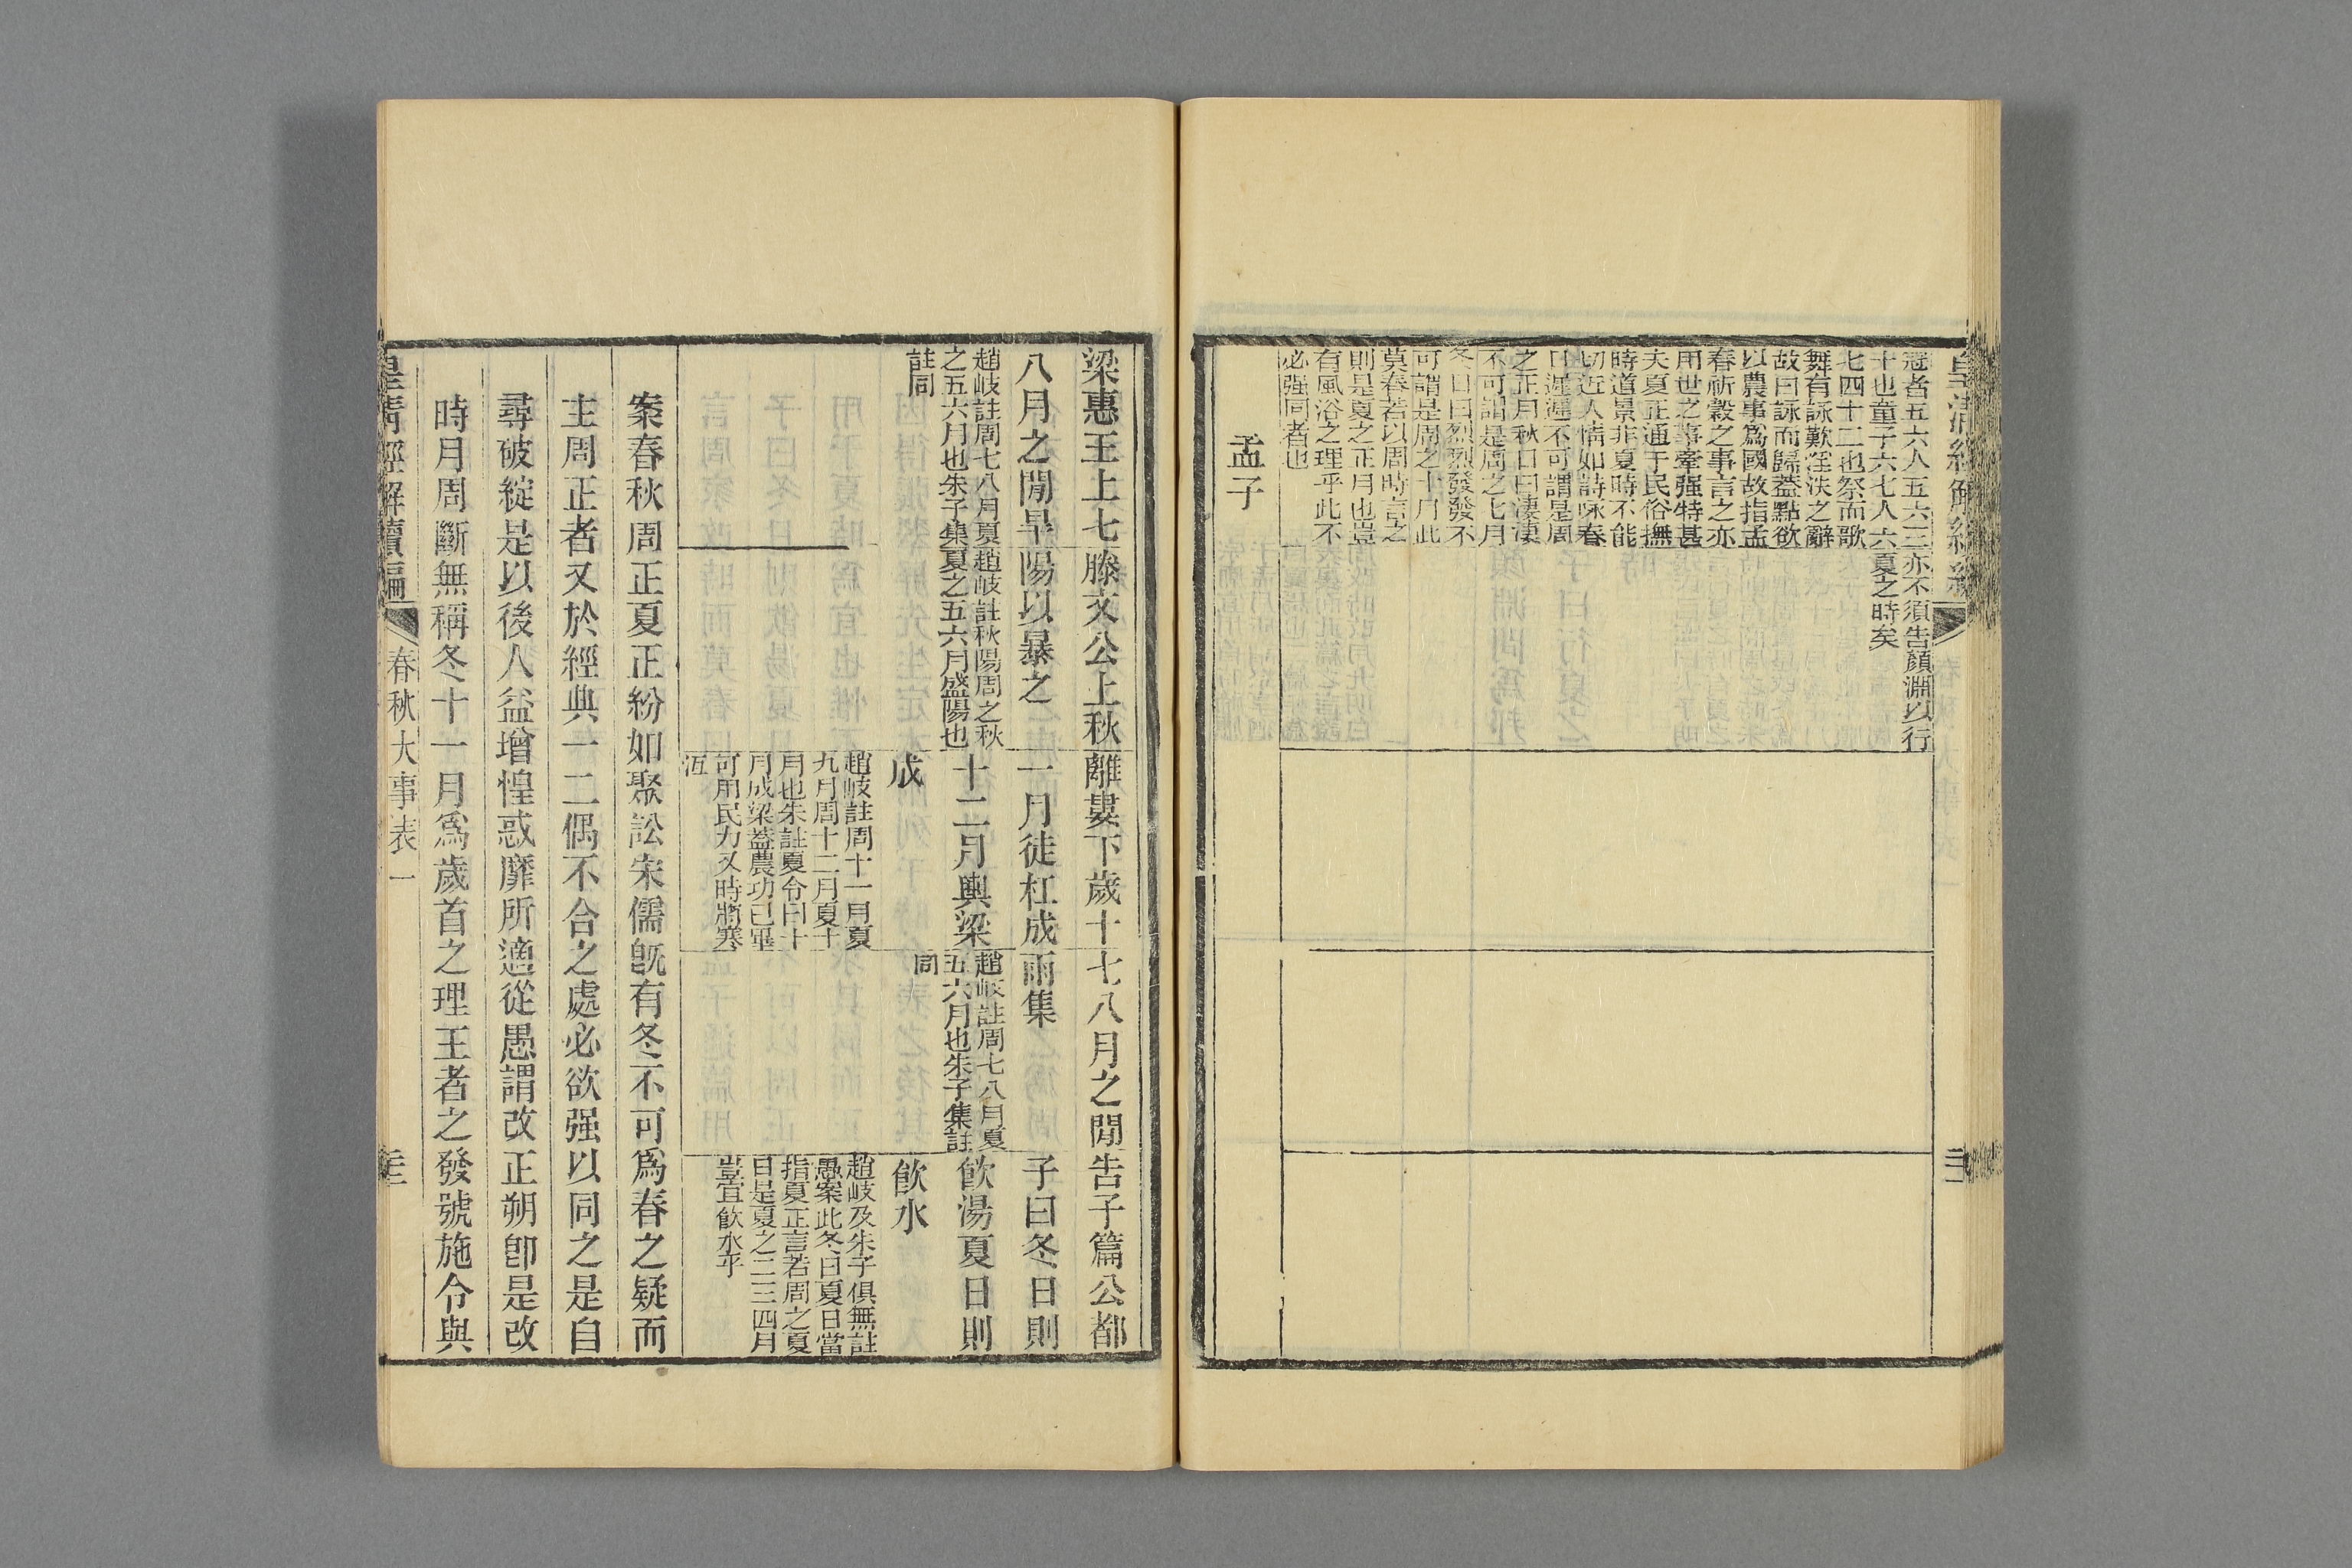 皇清經解續編
冠者五六人五六三
十也童子六七人六
七四十二也祭而歌
舞有詠歎淫泆之辭
故曰詠而歸蓋點欲
以農事爲國故指孟
春祈穀之事言之亦
用世之事牽强特甚
夫夏正通于民俗撫
時道景非夏時不能
切近人情如詩咏春
日遲遲不可謂是周
之正月秋日曰凄凄
不可謂是周之七月
冬日曰烈烈發發不
可謂是周之十月此
莫春若以周時言之
則是夏之正月也豈
有風浴之理乎此不
必强同者也
亦不須告顏淵以行
夏之時矣
孟子
梁惠王上七
八月之閒旱
趙岐註周七八月夏
之五六月也朱子集
註同
滕文公上秋
陽以暴之
趙岐註秋陽周之秋
夏之五六月盛陽也
離婁下歲十
一月徒杠成
十二月輿梁
成
趙岐註周十一月夏
九月周十二月夏十
月也朱註夏令曰十
月成梁蓋農功已畢
可用民力又時將寒
沍
七八月之閒
雨集
趙岐註周七八月夏
五六月也朱子集註
同
告子篇公都
子曰冬日則
飮湯夏日則
飮水
趙岐及朱子俱無註
愚案此冬日夏日當
指夏正言若周之夏
日是夏之二三四月
豈宜飮水乎
案春秋周正夏正紛如聚訟宋儒旣有冬不可爲春之疑而
主周正者又於經典一二偶不合之處必欲强以同之是自
尋破綻是以後人益增惶惑靡所適從愚謂改正朔卽是改
時月周斷無稱冬十一月爲歲首之理王者之發號施令與
皇淸經解續編
春秋大事表一